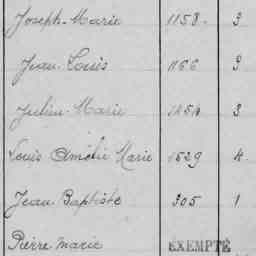 Joseph-Marie 1158 3
Jean-Louis 1166 3
Julien-Marie 1454 3
Louis Amélie Marie 1529 4
Jean Baptiste 305 1
Pierre Marie EXEMPTÉ